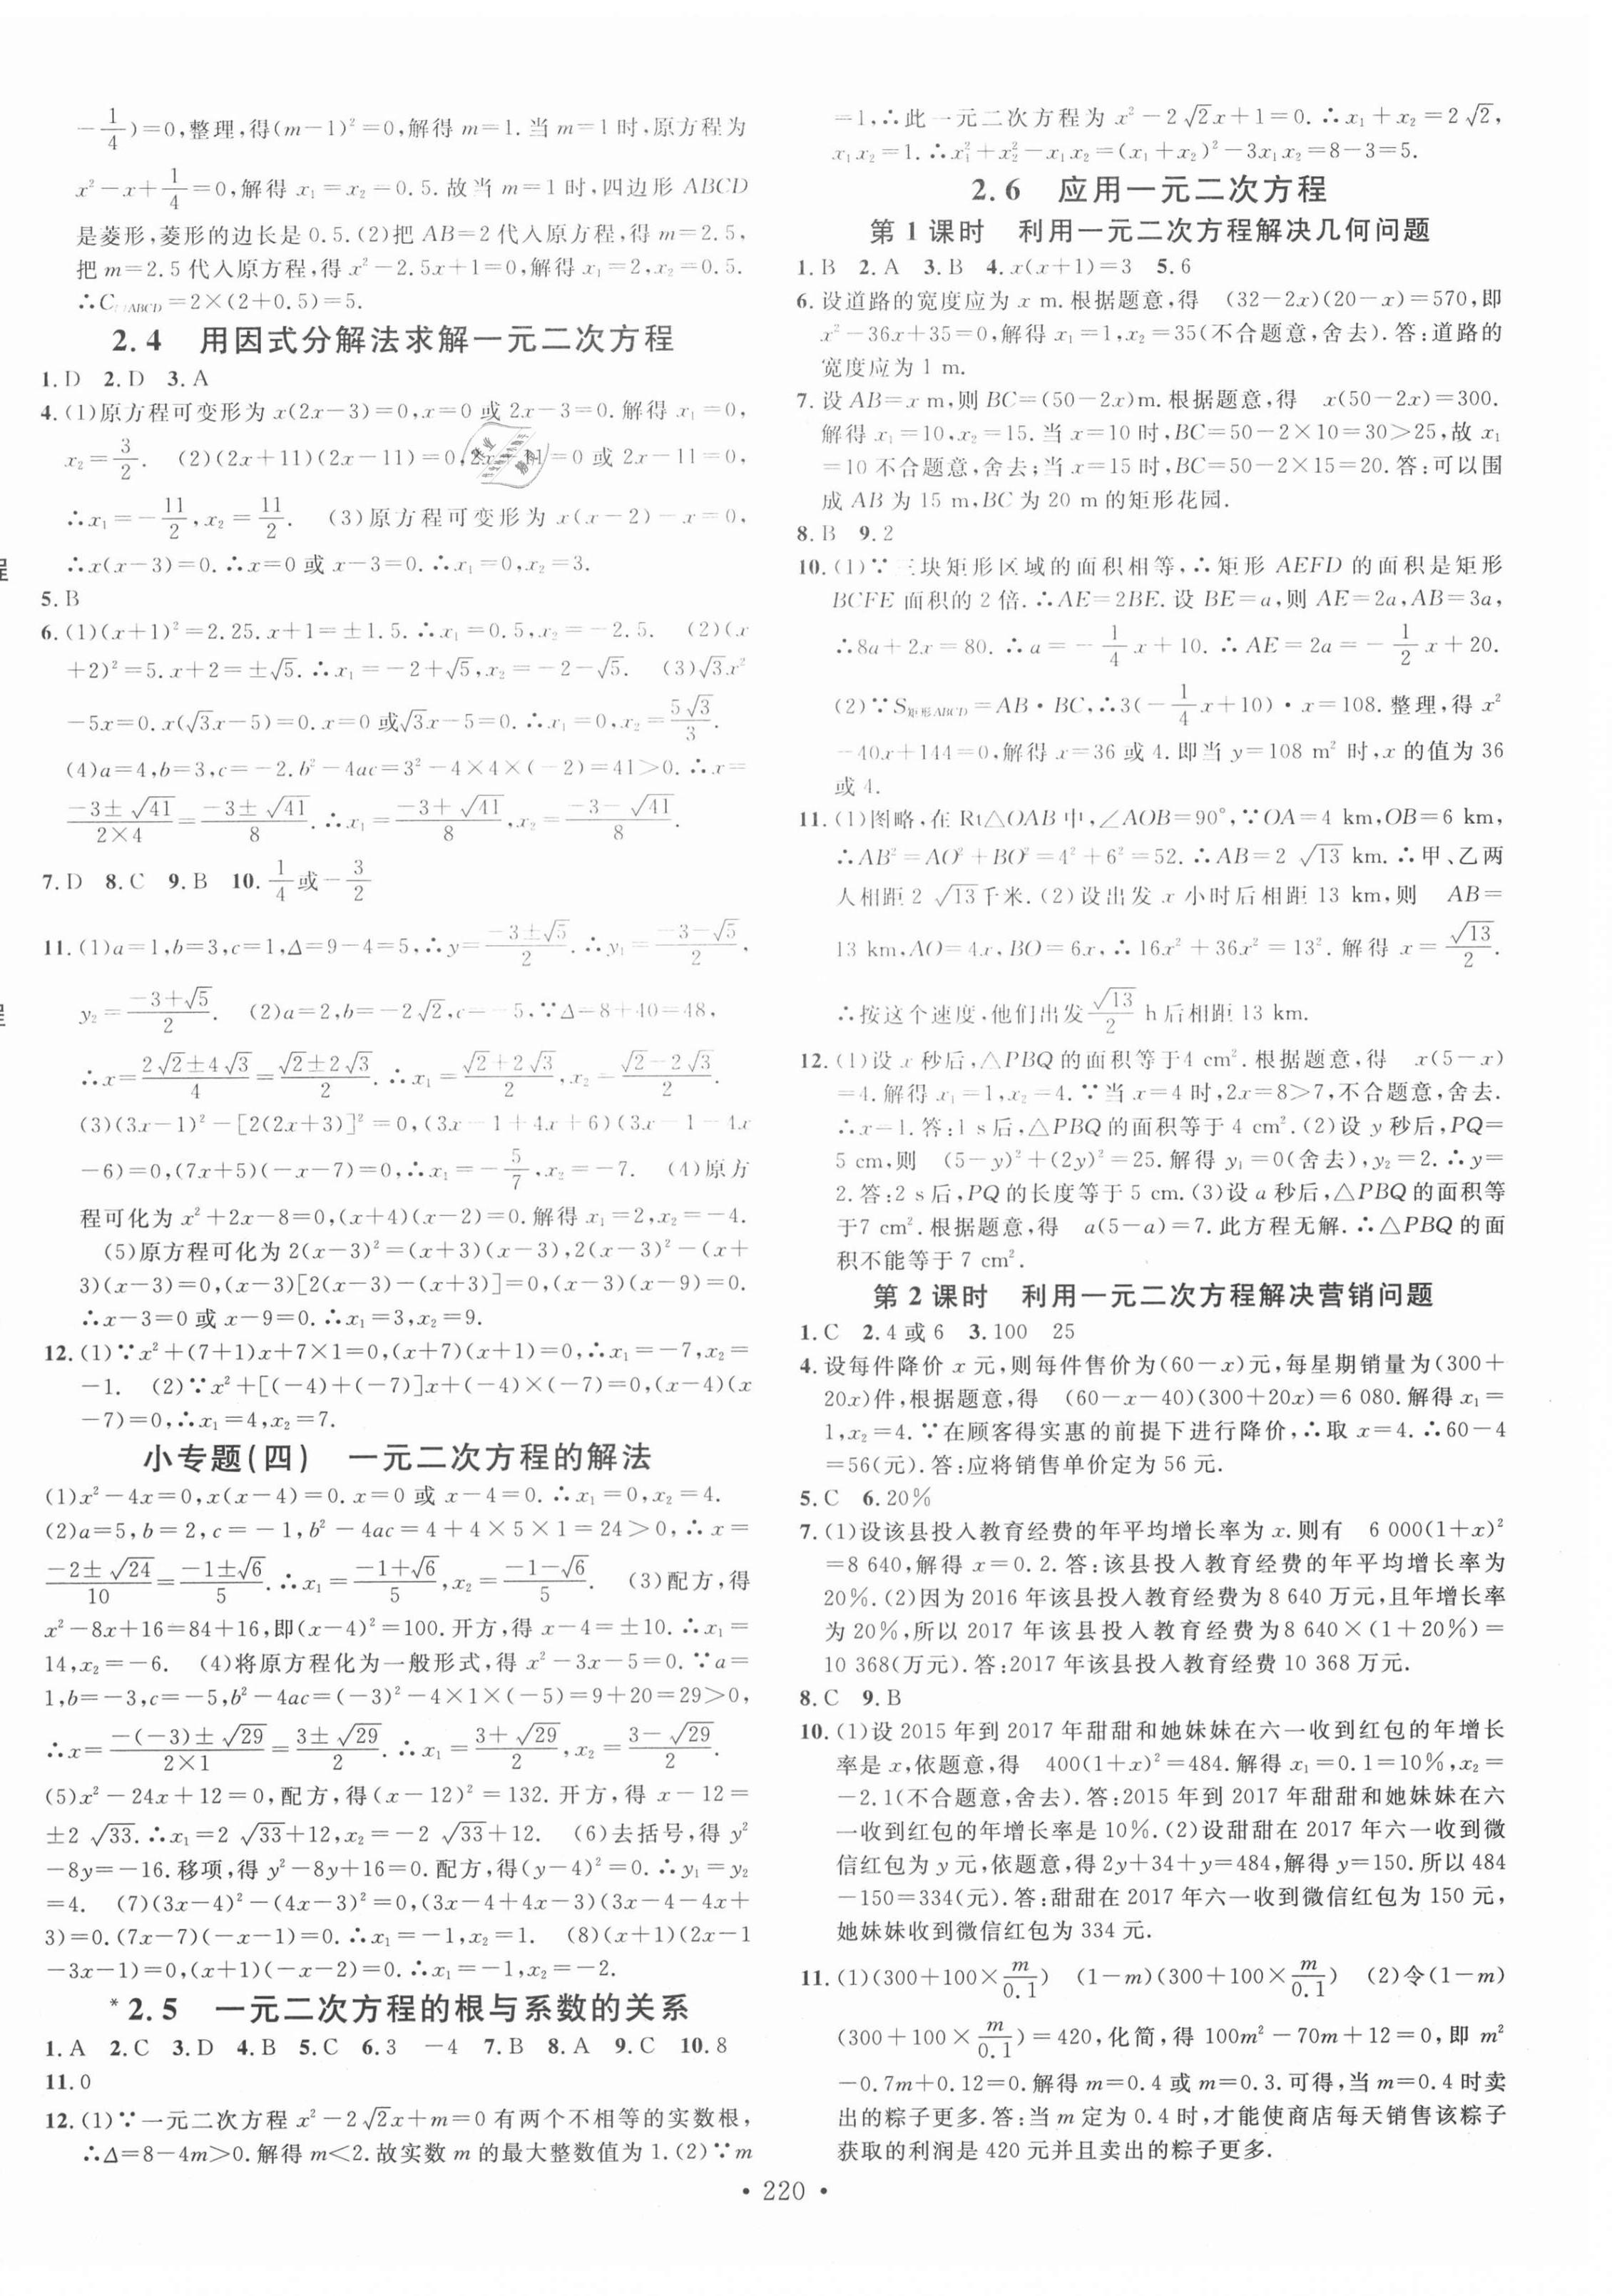 −1/4)=0,整理,得(m−1)²=0,解得 m=1.当 m=1 时,原方程为
x²−x+1/4=0,解得 x₁=x₂=0.5.故当 m=1 时,四边形 ABCD
是菱形,菱形的边长是 0.5.(2)把 AB=2 代入原方程,得 m=2.5,
把 m=2.5 代入原方程,得 x²−2.5x+1=0,解得 x₁=2,x₂=0.5.
∴C ABCD=2×(2+0.5)=5.
2.4 用因式分解法求解一元二次方程
1.D 2.D 3.A
4.(1)原方程可变形为 x(2x−3)=0,x=0 或 2x−3=0.解得 x₁=0,
x₂=3/2. (2)(2x+11)(2x−11)=0,2x+11=0 或 2x−11=0,
∴x₁=−11/2,x₂=11/2. (3)原方程可变形为 x(x−2)−x=0,
∴x(x−3)=0.∴x=0 或 x−3=0.∴x₁=0,x₂=3.
5.B
6.(1)(x+1)²=2.25.x+1=±1.5.∴x₁=0.5,x₂=−2.5. (2)(x
+2)²=5.x+2=±√5.∴x₁=−2+√5,x₂=−2−√5. (3)√3x²
−5x=0.x(√3x−5)=0.x=0 或√3x−5=0.∴x₁=0,x₂=5√3/3.
(4)a=4,b=3,c=−2.b²−4ac=3²−4×4×(−2)=41>0.∴x=
(−3±√41)/(2×4)=(−3±√41)/8.∴x₁=(−3+√41)/8,x₂=(−3−√41)/8.
7.D 8.C 9.B 10.1/4或−3/2
11.(1)a=1,b=3,c=1,Δ=9−4=5,∴y=(−3±√5)/2.∴y₁=(−3−√5)/2,
y₂=(−3+√5)/2. (2)a=2,b=−2√2,c=−5,∵Δ=8+40=48,
∴x=(2√2±4√3)/4=(√2±2√3)/2.∴x₁=(√2+2√3)/2,x₂=(√2−2√3)/2.
(3)(3x−1)²−[2(2x+3)]²=0,(3x−1+4x+6)(3x−1−4x
−6)=0,(7x+5)(−x−7)=0,∴x₁=−5/7,x₂=−7. (4)原方
程可化为 x²+2x−8=0,(x+4)(x−2)=0.解得 x₁=2,x₂=−4.
(5)原方程可化为 2(x−3)²=(x+3)(x−3),2(x−3)²−(x+
3)(x−3)=0,(x−3)[2(x−3)−(x+3)]=0,(x−3)(x−9)=0.
∴x−3=0 或 x−9=0.∴x₁=3,x₂=9.
12.(1)∵x²+(7+1)x+7×1=0,(x+7)(x+1)=0,∴x₁=−7,x₂=
−1. (2)∵x²+[(−4)+(−7)]x+(−4)×(−7)=0,(x−4)(x
−7)=0,∴x₁=4,x₂=7.
小专题(四) 一元二次方程的解法
(1)x²−4x=0,x(x−4)=0.x=0 或 x−4=0.∴x₁=0,x₂=4.
(2)a=5,b=2,c=−1,b²−4ac=4+4×5×1=24>0,∴x=
(−2±√24)/10=(−1±√6)/5.∴x₁=(−1+√6)/5,x₂=(−1−√6)/5. (3)配方,得
x²−8x+16=84+16,即(x−4)²=100.开方,得 x−4=±10.∴x₁=
14,x₂=−6. (4)将原方程化为一般形式,得 x²−3x−5=0.∵a=
1,b=−3,c=−5,b²−4ac=(−3)²−4×1×(−5)=9+20=29>0,
∴x=(−(−3)±√29)/(2×1)=(3±√29)/2.∴x₁=(3+√29)/2,x₂=(3−√29)/2.
(5)x²−24x+12=0,配方,得(x−12)²=132.开方,得 x−12=
±2√33.∴x₁=2√33+12,x₂=−2√33+12. (6)去括号,得 y²
−8y=−16.移项,得 y²−8y+16=0.配方,得(y−4)²=0.∴y₁=y₂
=4. (7)(3x−4)²−(4x−3)²=0,(3x−4+4x−3)(3x−4−4x+
3)=0.(7x−7)(−x−1)=0.∴x₁=−1,x₂=1. (8)(x+1)(2x−1
−3x−1)=0,(x+1)(−x−2)=0.∴x₁=−1,x₂=−2.
*2.5 一元二次方程的根与系数的关系
1.A 2.C 3.D 4.B 5.C 6.3 −4 7.B 8.A 9.C 10.8
11.0
12.(1)∵一元二次方程 x²−2√2x+m=0 有两个不相等的实数根,
∴Δ=8−4m>0.解得 m<2.故实数 m 的最大整数值为 1.(2)∵m
=1,∴此一元二次方程为 x²−2√2x+1=0.∴x₁+x₂=2√2,
x₁x₂=1.∴x₁²+x₂²−x₁x₂=(x₁+x₂)²−3x₁x₂=8−3=5.
2.6 应用一元二次方程
第 1 课时 利用一元二次方程解决几何问题
1.B 2.A 3.B 4.x(x+1)=3 5.6
6.设道路的宽度应为 x m.根据题意,得 (32−2x)(20−x)=570,即
x²−36x+35=0,解得 x₁=1,x₂=35(不合题意,舍去).答:道路的
宽度应为 1 m.
7.设 AB=x m,则 BC=(50−2x)m.根据题意,得 x(50−2x)=300.
解得 x₁=10,x₂=15.当 x=10 时,BC=50−2×10=30>25,故 x₁
=10 不合题意,舍去;当 x=15 时,BC=50−2×15=20.答:可以围
成 AB 为 15 m,BC 为 20 m 的矩形花园.
8.B 9.2
10.(1)∵三块矩形区域的面积相等,∴矩形 AEFD 的面积是矩形
BCFE 面积的 2 倍.∴AE=2BE.设 BE=a,则 AE=2a,AB=3a,
∴8a+2x=80.∴a=−1/4x+10.∴AE=2a=−1/2x+20.
(2)∵S矩形ABCD=AB·BC,∴3(−1/4x+10)·x=108.整理,得 x²
−40x+144=0,解得 x=36 或 4.即当 y=108 m² 时,x 的值为 36
或 4.
11.(1)图略,在 Rt△OAB 中,∠AOB=90°,∵OA=4 km,OB=6 km,
∴AB²=AO²+BO²=4²+6²=52.∴AB=2√13 km.∴甲、乙两
人相距 2√13千米.(2)设出发 x 小时后相距 13 km,则 AB=
13 km,AO=4x,BO=6x,∴16x²+36x²=13².解得 x=√13/2.
∴按这个速度,他们出发√13/2 h后相距 13 km.
12.(1)设 x 秒后,△PBQ 的面积等于4 cm².根据题意,得 x(5−x)
=4.解得 x₁=1,x₂=4.∵当 x=4 时,2x=8>7,不合题意,舍去.
∴x=1.答:1 s后,△PBQ 的面积等于 4 cm².(2)设 y 秒后,PQ=
5 cm,则 (5−y)²+(2y)²=25.解得 y₁=0(舍去),y₂=2.∴y=
2.答:2 s后,PQ 的长度等于 5 cm.(3)设 a 秒后,△PBQ 的面积等
于7 cm².根据题意,得 a(5−a)=7.此方程无解.∴△PBQ 的面
积不能等于 7 cm².
第 2 课时 利用一元二次方程解决营销问题
1.C 2.4 或 6 3.100 25
4.设每件降价 x 元,则每件售价为(60−x)元,每星期销量为(300+
20x)件,根据题意,得 (60−x−40)(300+20x)=6 080.解得 x₁=
1,x₂=4.∵在顾客得实惠的前提下进行降价,∴取 x=4.∴60−4
=56(元).答:应将销售单价定为 56 元.
5.C 6.20%
7.(1)设该县投入教育经费的年平均增长率为 x.则有 6 000(1+x)²
=8 640,解得 x=0.2.答:该县投入教育经费的年平均增长率为
20%.(2)因为 2016 年该县投入教育经费为 8 640 万元,且年增长率
为 20%,所以 2017 年该县投入教育经费为8 640×(1+20%)=
10 368(万元).答:2017 年该县投入教育经费 10 368 万元.
8.C 9.B
10.(1)设 2015 年到 2017 年甜甜和她妹妹在六一收到红包的年增长
率是 x,依题意,得 400(1+x)²=484.解得 x₁=0.1=10%,x₂=
−2.1(不合题意,舍去).答:2015 年到 2017 年甜甜和她妹妹在六
一收到红包的年增长率是 10%.(2)设甜甜在 2017 年六一收到微
信红包为 y 元,依题意,得 2y+34+y=484,解得 y=150.所以 484
−150=334(元).答:甜甜在 2017 年六一收到微信红包为 150 元,
她妹妹收到微信红包为 334 元.
11.(1)(300+100×m/0.1) (1−m)(300+100×m/0.1) (2)令(1−m)
(300+100×m/0.1)=420,化简,得 100m²−70m+12=0,即 m²
−0.7m+0.12=0.解得 m=0.4 或 m=0.3.可得,当 m=0.4 时卖
出的粽子更多.答:当 m 定为 0.4 时,才能使商店每天销售该粽子
获取的利润是 420 元并且卖出的粽子更多.
• 220 •
程
程